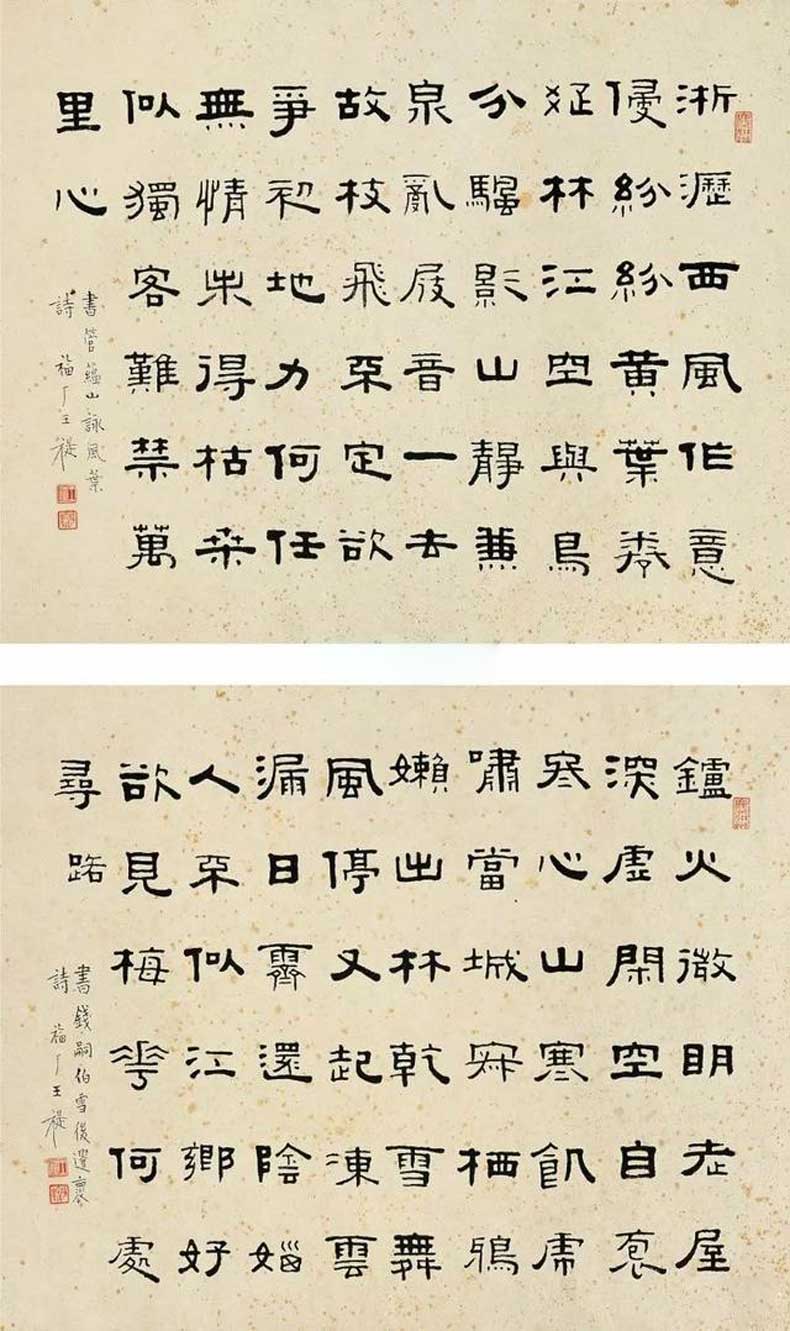 淅瀝西風作意
侵紛紛黃葉卷
疏林江空與鳥
分影山靜兼
泉亂屐音一去
故枝飛不定欲
爭初地力何任
無情未得枯桑
似獨客難禁萬
里心
書管韞山詠風葉
詩 福厂王禔
鑪火微明老屋
深虛閑空自
心山寒飢虎
嘯當城寂栖鴉
嬾出林乾雪舞
風停又起凍雲
漏日霽還陰㛴
人不似江鄉好
欲見梅花何處
尋 路
書錢嗣伯雪後遣裏
詩 福厂王禔